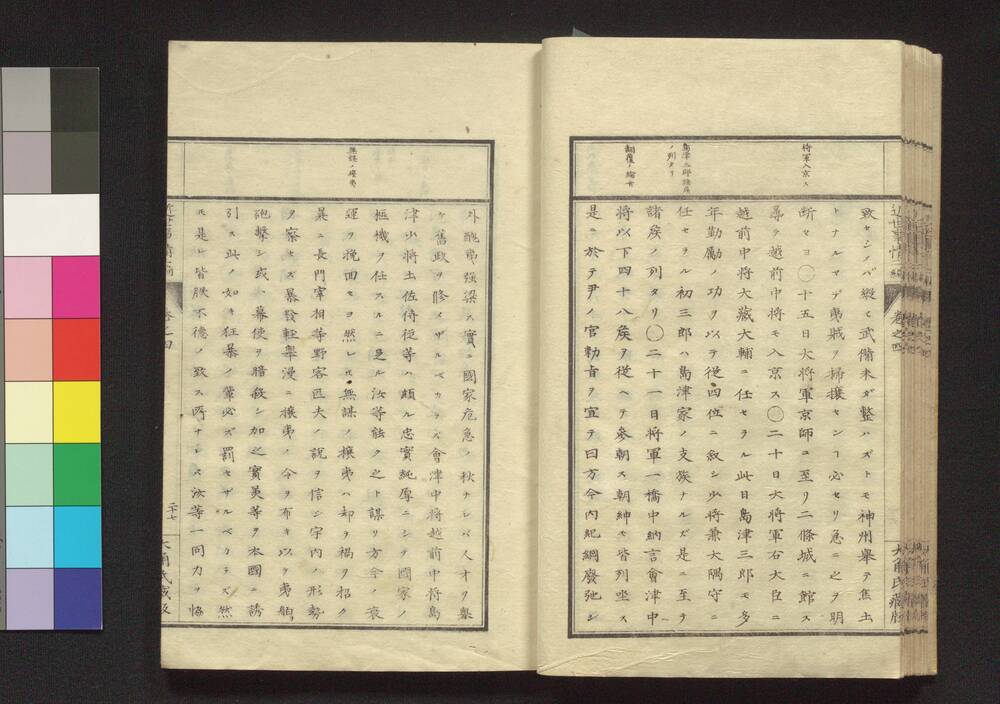 近世事情三編 卷之四 大角氏藏版
將軍入京ス
島津三郎諸侯
ノ列タリ
翻覆ノ綸言
致セシノバ縱ヒ武備未ダ整ハズトモ神州擧テ焦土
トナルマデ夷賊ヲ掃攘センヿ必セリ急ニ之ヲ明
斷セヨ〇十五日大將軍京師ニ至リ二條城ニ館ス
尋テ越前中將モ入京ス〇二十日大將軍右大臣ニ
越前中將大藏大輔ニ任セラル此日島津三郎モ多
年勤勵ノ功ヲ以テ從四位ニ敘シ少將兼大隅守ニ
任セラル初三郎ハ島津家ノ支族ナルガ是ニ至テ
諸矦ノ列タリ〇二十一日將軍一橋中納言會津中
將以下四十八矦ヲ從ヘテ參朝ス朝紳モ皆列坐ス
是ニ於テ尹ノ官勅旨ヲ宣テ曰方今內紀綱廢弛シ
無謀ノ攘夷
外醜夷强梁ス實ニ國家危急ノ秋ナレバ人才ヲ擧
ケ舊政ヲ修メザルベカラズ會津中將越前中將島
津少將土佐侍從等ハ頗ル忠實純厚ニシテ國家ノ
樞機ヲ任スルニ足ル汝等能ク之ト謀リ方今ノ衰
運ヲ挽囬セヨ然レ𪜈無謀ノ攘夷ハ却テ禍ヲ招ク
曩ニ長門宰相等野客匹夫ノ說ヲ信シ宇內ノ形勢
ヲ察セズ暴發輕擧漫ニ攘夷ノ令ヲ布キ以テ夷舶
砲擊シ或ハ幕使ヲ暗殺シ加之實美等ヲ本國ニ誘
引ス此ノ如キ狂暴ノ輩必ズ罰セザルベカラズ然
𪜈是レ皆朕不德ノ致ス所ナレハ汝等一同力ヲ恊
近世事情三編 卷之四 二十七 大角氏藏版